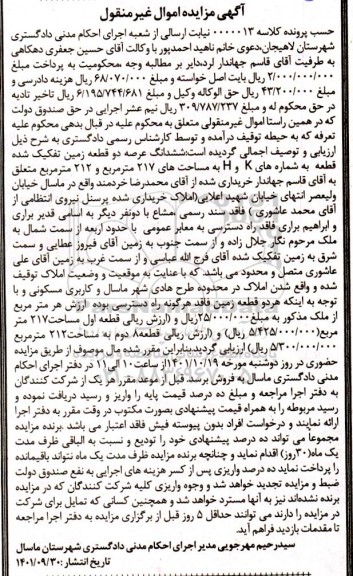 آگهی مزایده اموال غیرمنقول
حسب پرونده کلاسه ۰۰۰۰۰۱۳ نیابت ارسالی از شعبه اجرای احکام مدنی دادگستری
شهرستان لاهیجان،دعوی خانم ناهید احمدپور با وکالت آقای حسین جعفری دهکاهی
به طرفیت آقای قاسم جهاندار لرد،دایر بر مطالبه وجه ،محکومیت به پرداخت مبلغ
۲/۰۰۰/۰۰۰/۰۰۰ ریال بابت اصل خواسته و مبلغ ۶۸/۰۷۰/۰۰۰ ریال هزینه دادرسی و
مبلغ ۴۳/۲۰۰/۰۰۰ ریال حق الوکاله وکیل و مبلغ ۶/۱۹۵/۷۴۴/۶۸۱ ریال تاخیر تادیه
در حق محکوم له و مبلغ ۳۰۹/۷۸۷/۲۳۷ ریال نیم عشر اجرایی در حق صندوق دولت
که در همین راستا اموال غیرمنقولی متعلق به محکوم علیه در قبال بدهی محکوم علیه
تعرفه که به حیطه توقیف درآمده و توسط کارشناس رسمی دادگستری به شرح ذیل
ارزیابی و توصیف اجمالی گردیده است:ششدانگ عرصه دو قطعه زمین تفکیک شده
قطعه به شماره های K و H به مساحت های ۲۱۷ مترمربع و ۲۱۲ مترمربع متعلق
به آقای قاسم جهاندار خریداری شده از آقای محمدرضا خردمند واقع در ماسال خیابان
ولیعصر انتهای خیابان شهید اعلایی(املاک خریداری شده پرسنل نیروی انتظامی از
آقای محمد عاشوری ) فاقد سند رسمی مشاع با دونفر دیگر به اسامی قدیر براری
و ابراهیم براری فاقد راه دسترسی به معابر عمومی با حدود اربعه از سمت شمال به
ملک مرحوم نگار جلال زاده و از سمت جنوب به زمین آقای فیروز عطایی و سمت
شرق به زمین تفکیک شده آقای فرج الله عباسی و از سمت غرب به زمین آقای علی
عاشوری متصل و محدود می باشد که با عنایت به موقعیت و وضعیت املاک توقیف
شده و واقع شدن املاک در محدوده طرح هادی شهر ماسال و کاربری مسکونی و با
توجه به اینکه هردو قطعه زمین فاقد هرگونه راه دسترسی بوده ارزش هر متر مربع
از ملک مذکور به مبلغ ۲۵/۰۰۰/۰۰۰ریال و (ارزش ریالی قطعه اول مساحت۲۱۷ متر
مربع(۵/۴۲۵/۰۰۰/۰۰۰ ریال) و (ارزش ریالی قطعه۸ دوم به مساحت۲۱۲ مترمربع
۵/۳۰۰/۰۰۰/۰۰۰ ریال) ارزیابی گردید.بنابراین مقرر شده مال موصوف از طریق مزایده
حضوری در روز دوشنبه مورخه ۱۴۰۱/۱۰/۱۹از ساعت ۱۰ الی۱۱ در دفتر اجرای احکام
مدنی دادگستری ماسال به فروش برسد. قبل از موعد مقرر هر یک از شرکت کنندگان
به دفتر اجرا مراجعه و مبلغ ده درصد قیمت پایه را واریز و رسید دریافت نموده و
رسید مربوطه را به همراه قیمت پیشنهادی بصورت مکتوب در وقت مقرر به دفتر اجرا
ارائه نمایند و درخواست افراد بدون پیوسته فیش فاقد اعتبار می باشد .برنده مزایده
مجموعا می تواند ده درصد پیشنهادی خود را تودیع و نسبت به الباقی ظرف مدت
یک ماه(۳۰روز) اقدام نماید و چنانچه برنده مزایده ظرف مدت یک ماه نتواند باقیمانده
را پرداخت نماید ده درصد واریزی پس از کسر هزینه های اجرایی به نفع صندوق دولت
ضبط و مزایده تجدید خواهد شد و وجوه واریزی کلیه شرکت کنندگان که در مزایده
برنده نشده‌اند نیز به آنها مسترد خواهد شد و همچنین کسانی که تمایل برای شرکت
در مزایده را دارند می توانند حداقل ۵ روز قبل از برگزاری مزایده به دفتر اجرا مراجعه
تا مقدمات بازدید فراهم آید.
سیدرحیم مهرجویی مدیر اجرای احکام مدنی دادگستری شهرستان ماسال
تاریخ انتشار: ۱۴۰۱/۰۹/۳۰